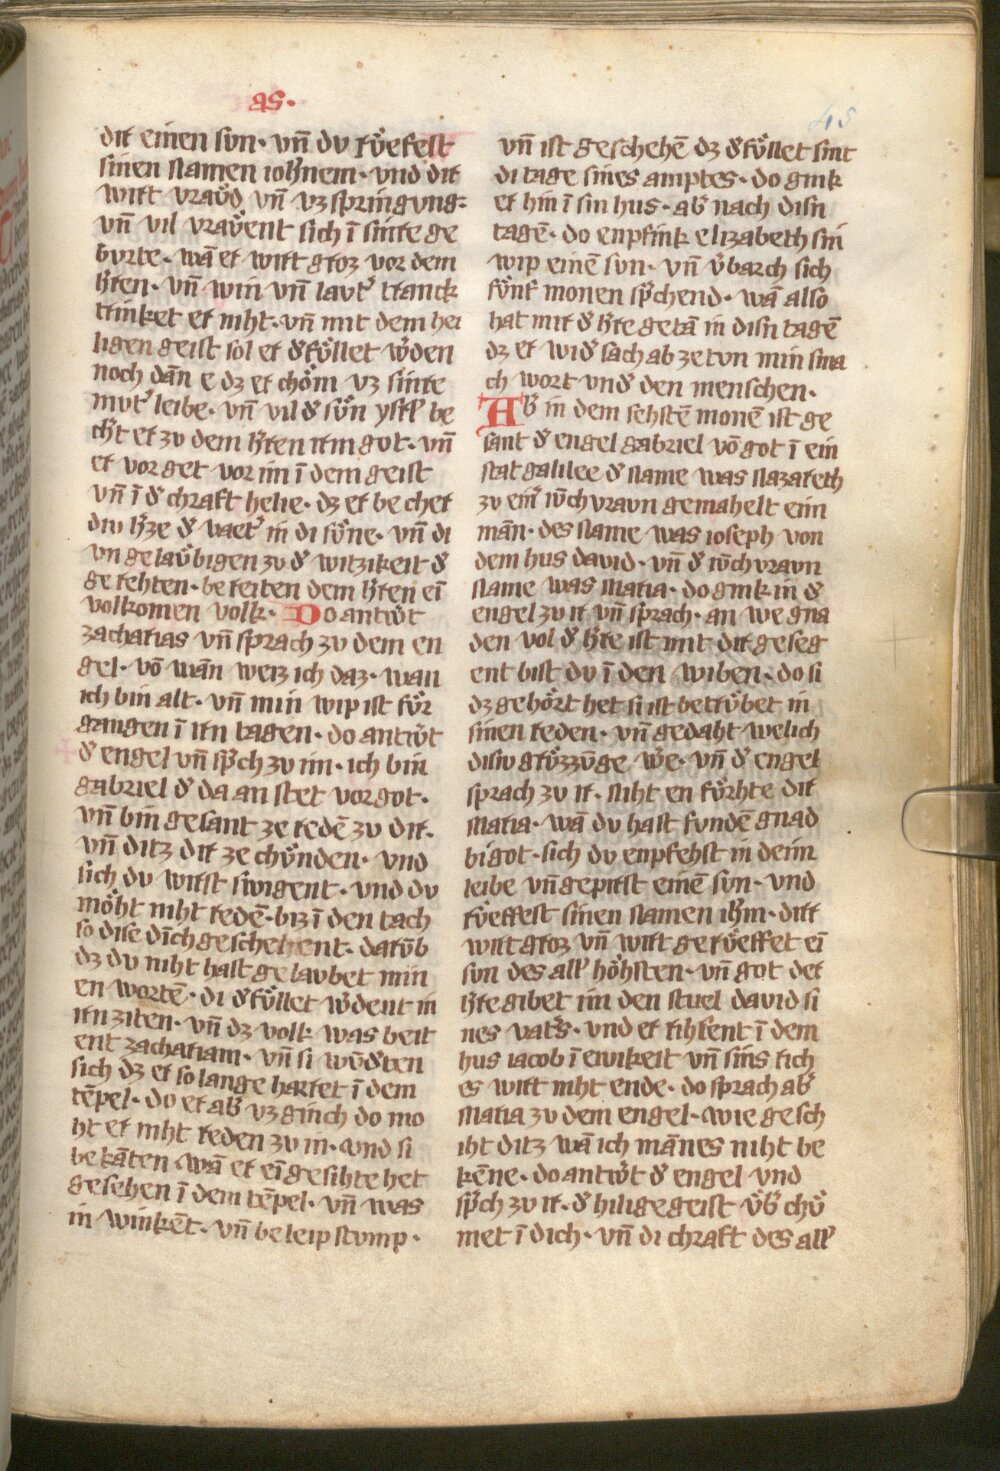 as.
45
dir einen sun · vn̄ du rv̊efest
sinen namen ioh̄nem · vnd dir
wirt vrav̊d vn̄ vz springvng ·
vn̄ vil vrav̊ent sich ī sinre ge
burte · wā er wirt groz vor dem
h̄ren · vn̄ win vn̄ lavt͛ tranck
trinket er niht · vn̄ mit dem hei
ligen geist sol er d͛fv̊llet w͛den
noch dān e dz er chöm vz sinre
mvt͛ leibe · vn̄ vil d͛ sv̊n ysrl͛ be
ch͛t er zv dem h̄ren irm got · vn̄
er vorget vor im ī dem geist
vn̄ ī d͛ chraft helie · dz er becher
div h͛ze d͛ vaet͛ in di sv̊ne · vn̄ di
vngelav̊bigen zv d͛ witzikeit d͛
gerehten · bereiten dem h̄ren eī
volkomen volk · Do antw͛t
zacharias vn̄ sprach zv dem en
gel · vō wān weiz ich daz · wan
ich bin alt · vn̄ min wip ist fv̊r
gangen ī irn tagen · do antw͛t
d͛ engel vn̄ sp͛ch zv im · ich bin
gabriel d͛ da an stet vor got ·
vn̄ bin gesant ze redē zv dir ·
vn̄ ditz dir ze chv̊nden · vnd
sich du wirst swigent · vnd du
möht niht redē · biz ī den tach
so dise dīch geschehent · darv̄b
dz du niht hast gelavbet min
en wortē · di d͛fv̊llet w͛dent in
irn ziten · vn̄ dz volk was beit
ent zachariam · vn̄ si wv̄d͛ten
sich dz er so lange hartet ī dem
tēpel · do er ab͛ vz ginch do mo
ht er niht reden zv in · vnd si
bekāten wā er eī gesihte het
gesehen ī dem tēpel · vn̄ was
in winkēt · vn̄ beleip stvmp ·
vn̄ ist geschehē dz d͛fv̊llet sint
di tage sines amptes · do gink
er hin ī sin hus · ab͛ nach disn
tagē · do enpfink elizabeth sin
wip einē sun · vn̄ v͛barch sich
fv̊nf monen sp͛chend · wā also
hat mir d͛ h̄re getā in disn tagē
dz er wid͛ sach ab zetvn min sma
ch wort vnd͛ den menschen ·
Ab͛ in dem sehstē monē ist ge
sant d͛ engel gabriel vō got ī ein
stat galilee d͛ name was nazareth
zv ein͛ iv̄chvravn gemahelt eim
mān · des name was ioseph von
dem hus david · vn̄ d͛ iv̄chvravn
name was maria · do gink in d͛
engel zv ir vn̄ sprach · an we gna
den vol d͛ h̄re ist mit dir geseg
ent bist du ī den wiben · do si
dz gehört het si ist betrv̊bet in
sinen reden · vn̄ gedaht welich
disiv grv̊zzv̄ge w͛e · vn̄ d͛ engel
sprach zv ir · niht en fv̊rhte dir
maria · wā du hast fundē gnad
bi got · sich du enpfehst in deim
leibe vn̄ gepirst einē sun · vnd
rv̊effest sinen namen ih͛m · dirr
wirt groz vn̄ wirt gerv̊effet eī
sun des all͛ höhsten · vn̄ got der
h̄re gibet im den stuel david si
nes vat͛s · vnd er rihsent ī dem
hus iacob ī ewikeit vn̄ sins rich
es wirt niht ende · do sprach ab͛
maria zv dem engel · wie gesch
iht ditz wā ich mānes niht be
kēne · do antw͛t d͛ engel vnd
sp͛ch zv ir · d͛ hilige geist v̊b͛ chv̊
met ī dich · vn̄ di chraft des all͛